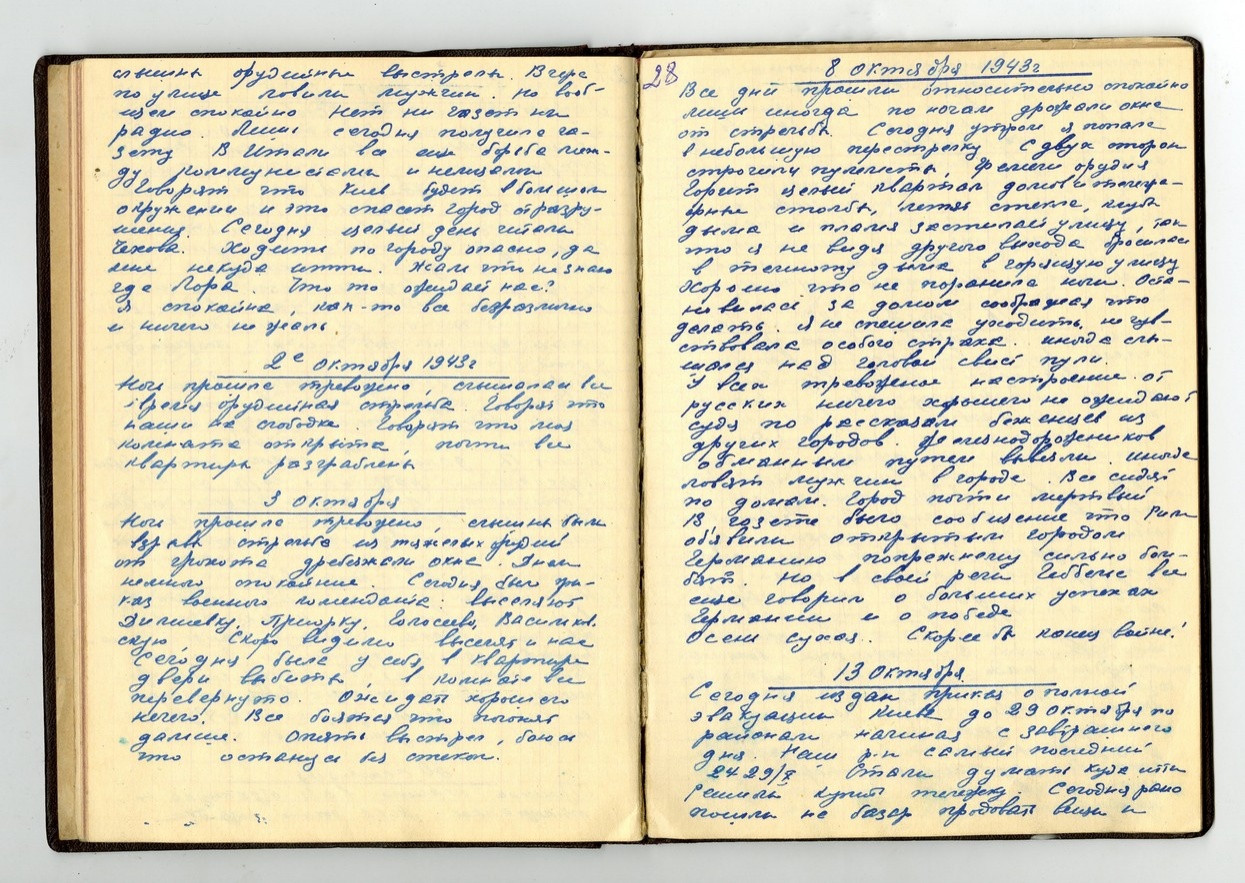 слышны орудийные выстрелы. Вчера
по улице ловили мужчин. Но вооб-
щем спокойно нет ни газет ни
радио. Лишь сегодня получила га-
зету В Итали все еще борьба меж-
ду коммунистами и немцами
Говорят что Киев будет в большом
окружении и это спасет город от разру-
шения. Сегодня целый день читали
Чехова. Ходить по городу опасно, да
мне некуда итти. Жаль что не знаю
где Лора. Что то ожидает нас?
Я спокойна, как-то все безразлично
и ничего не жаль.
2е октября 1943г
Ночь прошла тревожно, слышалась все
время орудийная стрельба. Говорят что
наши на слободке. Говорят что моя
комната открыта, почти все
квартиры разграблены
3 октября
Ночь прошла тревожно, слышны были
взрывы стрельба из тяжелых орудий
от грохота дребезжали окна. Днем
немного спокойнее. Сегодня был при-
каз военного коменданта: выселяют
Демиевку, Приорку, Голосеево, Васильков.
скую Скоро видимо выселят и нас
Сегодня была у себя в квартире
двери выбиты, в комнате все
перевернуто. Ожидать хорошего
нечего. Все боятся что погонят
дальше. Опять выстрел, боюсь
что останусь без стекол.
28
8 октября 1943г
Все дни прошли относительно спокойно
лишь иногда по ночам дрожали окна
от стрельбы. Сегодня утром я попала
в небольшую перестрелку С двух сторон
строчили пулеметы, ухали орудия
Горит целый квартал домов и телегра-
фные столбы, летят стекла, клубы
дыма и пламя застилает улицу, так
что я не видя другого выхода бросилась
в темноту дыма в горящую улицу
Хорошо что не поранила ноги. Оста-
новилась за домом соображая что
делать. Я не спешила уходить, не чув-
ствовала особого страха. иногда слы-
шался над головой свист пули.
У всех тревожное настроение. от
русских ничего хорошего не ожидают
судя по рассказам беженцев из
других городов. Железнодорожников
обманным путем вывезли. иногда
ловят мужчин в городе. Все сидят
по домам. Город почти мертвый
В газете было сообщение что Рим
объявили открытым городом
Германию попрежнему сильно бом-
бят. Но в своей речи Геббельс все
еще говорил о больших успехах
Германии и о победе
Осень сухая. Скорее бы конец войне!
13 Октября.
Сегодня издан приказ о полной
эвакуации Киева до 29 октября по
районам начиная с завтрашнего
дня. Наш р-н самый последний
24 29/X Стали думать куда итти
Решили купить тележку. Сегодня рано
пошли на базар продавать вещи и